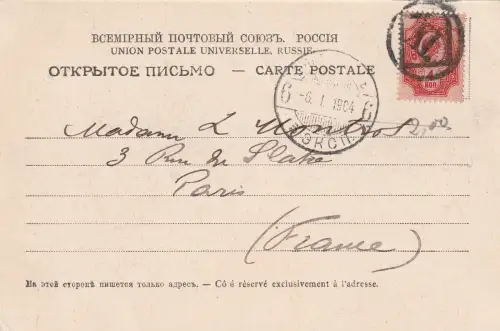 ВСЕМІРНЫЙ ПОЧТОВЫЙ СОЮЗЪ. РОССІЯ
UNION POSTALE UNIVERSELLE. RUSSIE
ОТКРЫТОЕ ПИСЬМО — CARTE POSTALE
6 -6.1.1904 6
ЭКСП.
КОП
2,00
Madame L
3 Rue de
Paris
(France)
На этой сторонѣ пишется только адресъ. — Cô é réservé exclusivement à l'adresse.